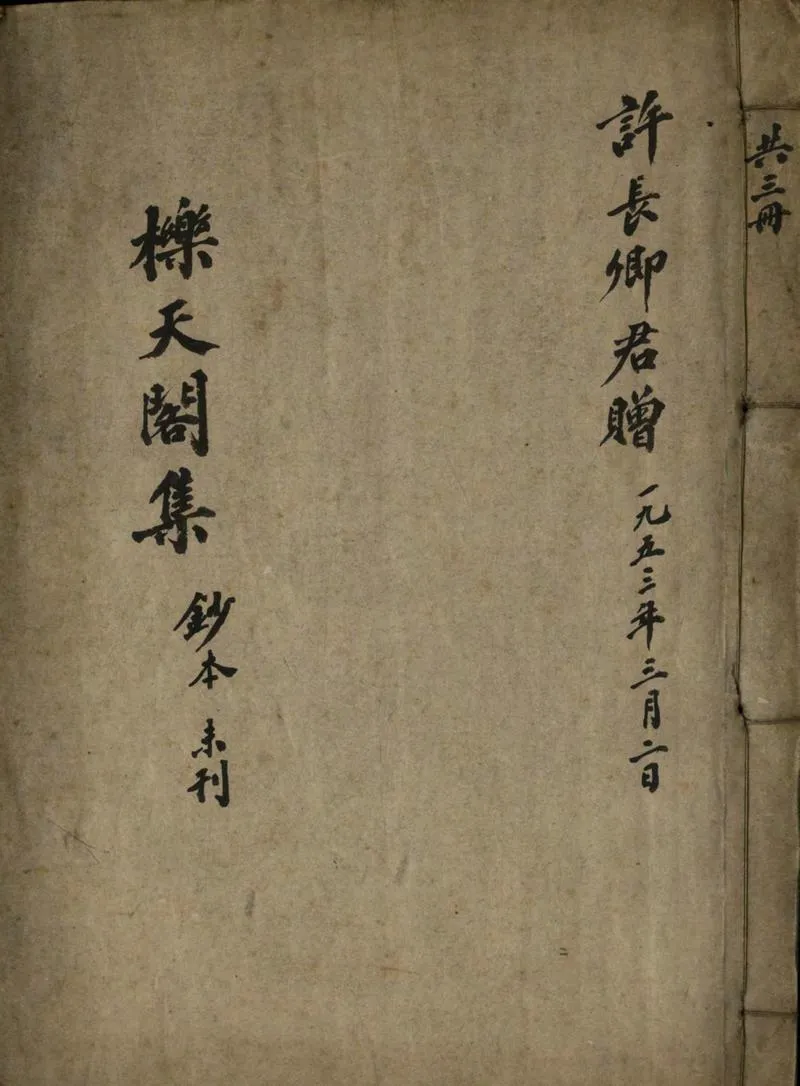 共三冊
許長卿君贈 一九五三年三月二日
櫟天閣集 鈔本 未刊